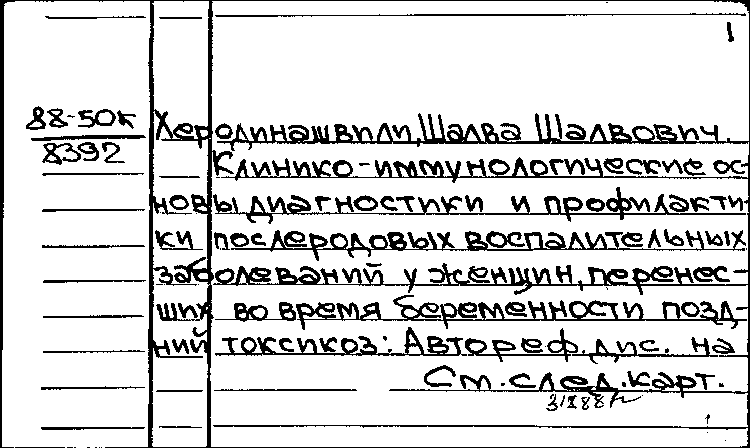 1
88-50к Херодинашвили, Шалва Шалвович.
8392 Клинико-иммунологические ос-
новы диагностики и профилакти-
ки послеродовых воспалительных
заболеваний у женщин, перенес-
ших во время беременности позд-
ний токсикоз: Автореф. дис. на
См. след. карт.